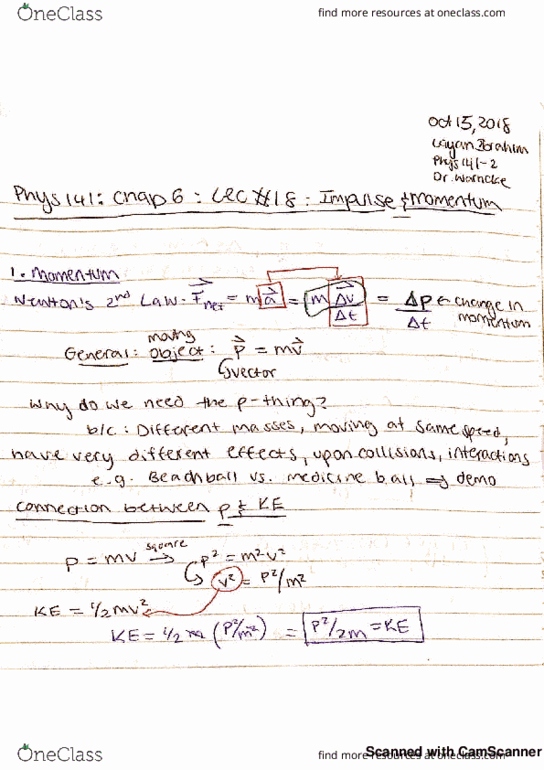 OneClass
find more resources at oneclass.com
Oct 15, 2018
Layan Ibrahim
Phys 141-2
Dr. Warncke
Phys 141: Chap 6: Lec #18: Impulse & Momentum
1. Momentum
Newton's 2nd Law. F⃗net = m a⃗ = m Δv⃗/Δt = Δp/Δt ← change in momentum
moving
General: object: p⃗ = mv⃗
↳ vector
Why do we need the p-thing?
b/c: Different masses, moving at same speed,
have very different effects, upon collisions, interactions
e.g. Beachball vs. medicine ball ⇒ demo
connection between p & KE
square
P = mv → p² = m²v²
v² = P²/m²
KE = 1/2 mv²
KE = 1/2 m (P²/m²) = P²/2m = KE
OneClass
find more resources at oneclass.com
Scanned with CamScanner